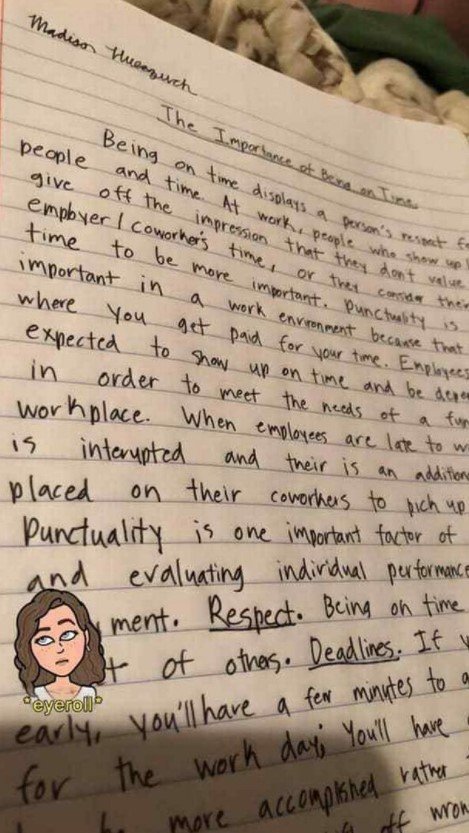 Madison
The Importance of Being on Time
Being on time displays a person's respect
people and time. At work, people who show up
give off the impression that they don't value
employer / coworker's time, or they consider their
time to be more important. Punctuality is
important in a work environment because that
where you get paid for your time. Employees
expected to show up on time and be
in order to meet the needs of a
workplace. When employees are late to
is interupted and their is an
placed on their coworkers to pick up
Punctuality is one important factor of
and evaluating individual performance
ment. Respect. Being on time
of others. Deadlines. If
*eyeroll*
early, you'll have a few minutes to
for the work day; you'll have
more accomplished rather
off